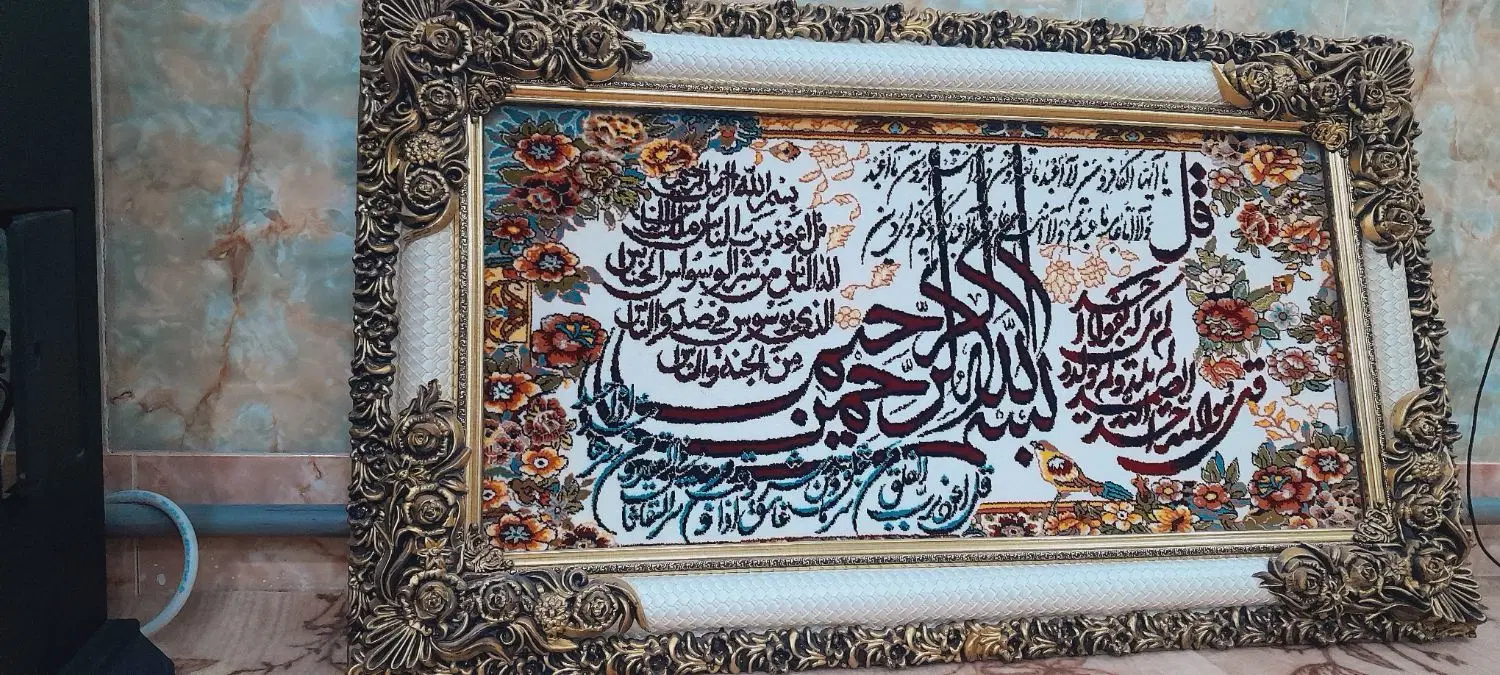 قل
یا ایها الکافرون لا اعبد ما تعبدون ولا انتم عابدون ما اعبد
ولا انا عابد ما عبدتم ولا انتم عابدون ما اعبد لکم دینکم ولی دین
بسم الله الرحمن الرحیم
قل هو الله احد الله الصمد لم یلد ولم یولد
ولم یکن له کفوا احد
بسم الله الرحمن الرحیم
قل اعوذ برب الناس ملک الناس
اله الناس من شر الوسواس الخناس
الذی یوسوس فی صدور الناس
من الجنة والناس
قل اعوذ برب الفلق من شر ما خلق ومن شر
غاسق اذا وقب ومن شر النفاثات